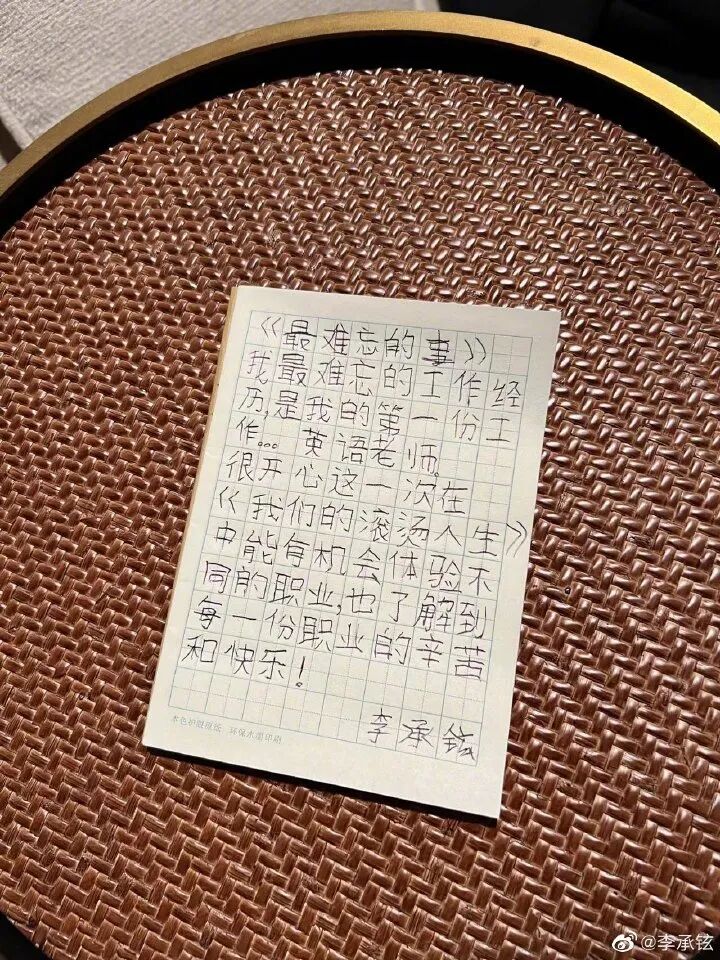 《最难忘的事》
我最难忘的工作经
历,是我的第一份工
作... 英语老师。
很开心这一次在
《我们的滚汤人生》
中能有机会体验不
同的职业,也了解到
每一份职业的辛苦
和快乐!
李承铉
本色护眼原纸 环保水墨印刷
@李承铉